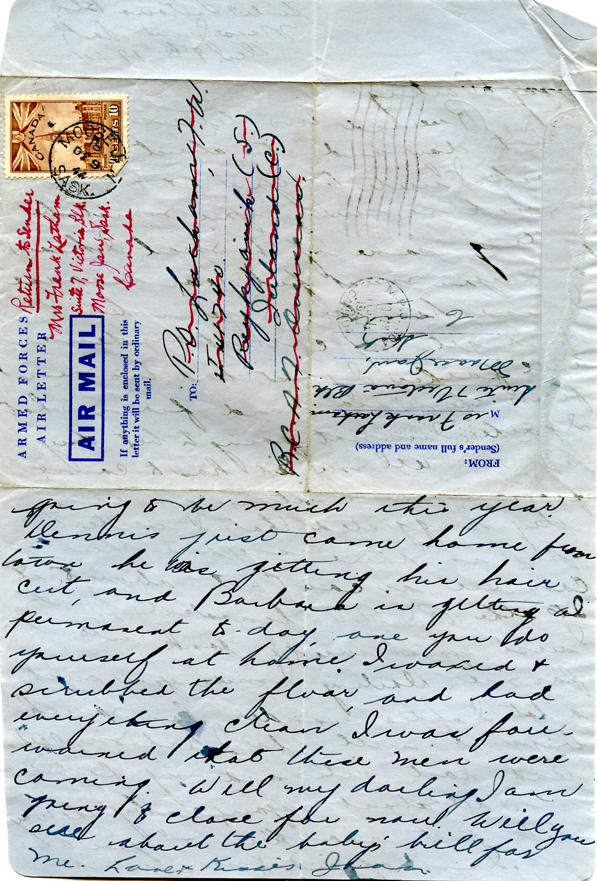 CANADA
10 CENTS
MOOSE JAW
SASK.
Return to Sender
Mrs Frank Latham
Suite 7 Victoria Blk.
Moose Jaw, Sask.
Canada
ARMED FORCES
AIR LETTER
AIR MAIL
If anything is enclosed in this
letter it will be sent by ordinary
mail.
TO:
Reykjavik (I)
Iceland (C)
FROM:
(Sender's full name and address)
Mrs Frank Latham
Suite 7 Victoria Blk
Moose Jaw,
Sask
going to be much this year
Dennis just came home from
town he is getting his hair
cut, and Barbara is getting a
permanent to-day, one you do
yourself at home. I waxed +
scrubbed the floor, and had
everything clean I was fore-
warned that these men were
coming. Well my darling I am
going to close for now. Will you
see about the baby's bill for
me. Love + Kisses